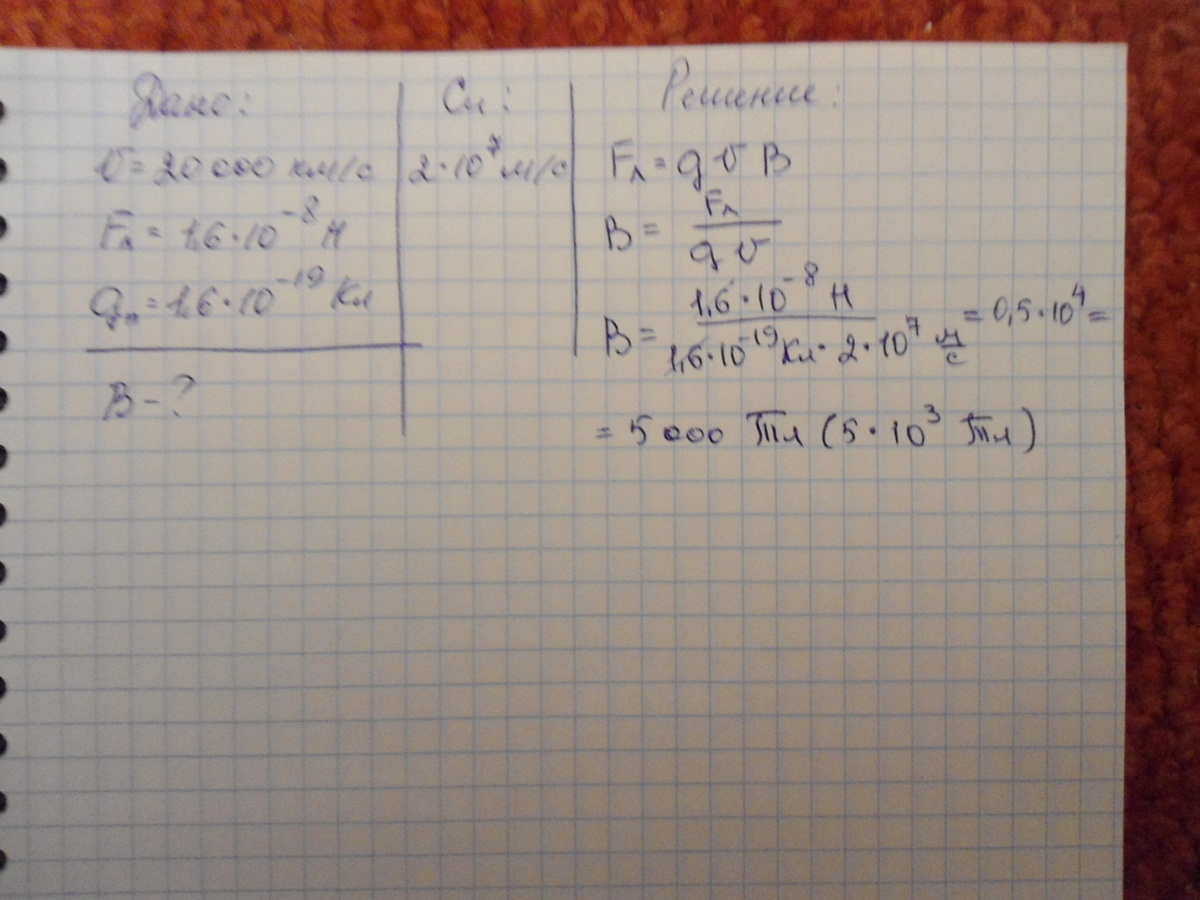 Дано:
υ = 20 000 км/с
Fл = 1,6 · 10⁻⁸ Н
qп = 1,6 · 10⁻¹⁹ Кл
B - ?
Си:
2 · 10⁷ м/с
Решение:
Fл = q υ B
B = Fл / q υ
B = 1,6 · 10⁻⁸ Н / 1,6 · 10⁻¹⁹ Кл · 2 · 10⁷ м/с = 0,5 · 10⁴ =
= 5 000 Тл (5 · 10³ Тл)